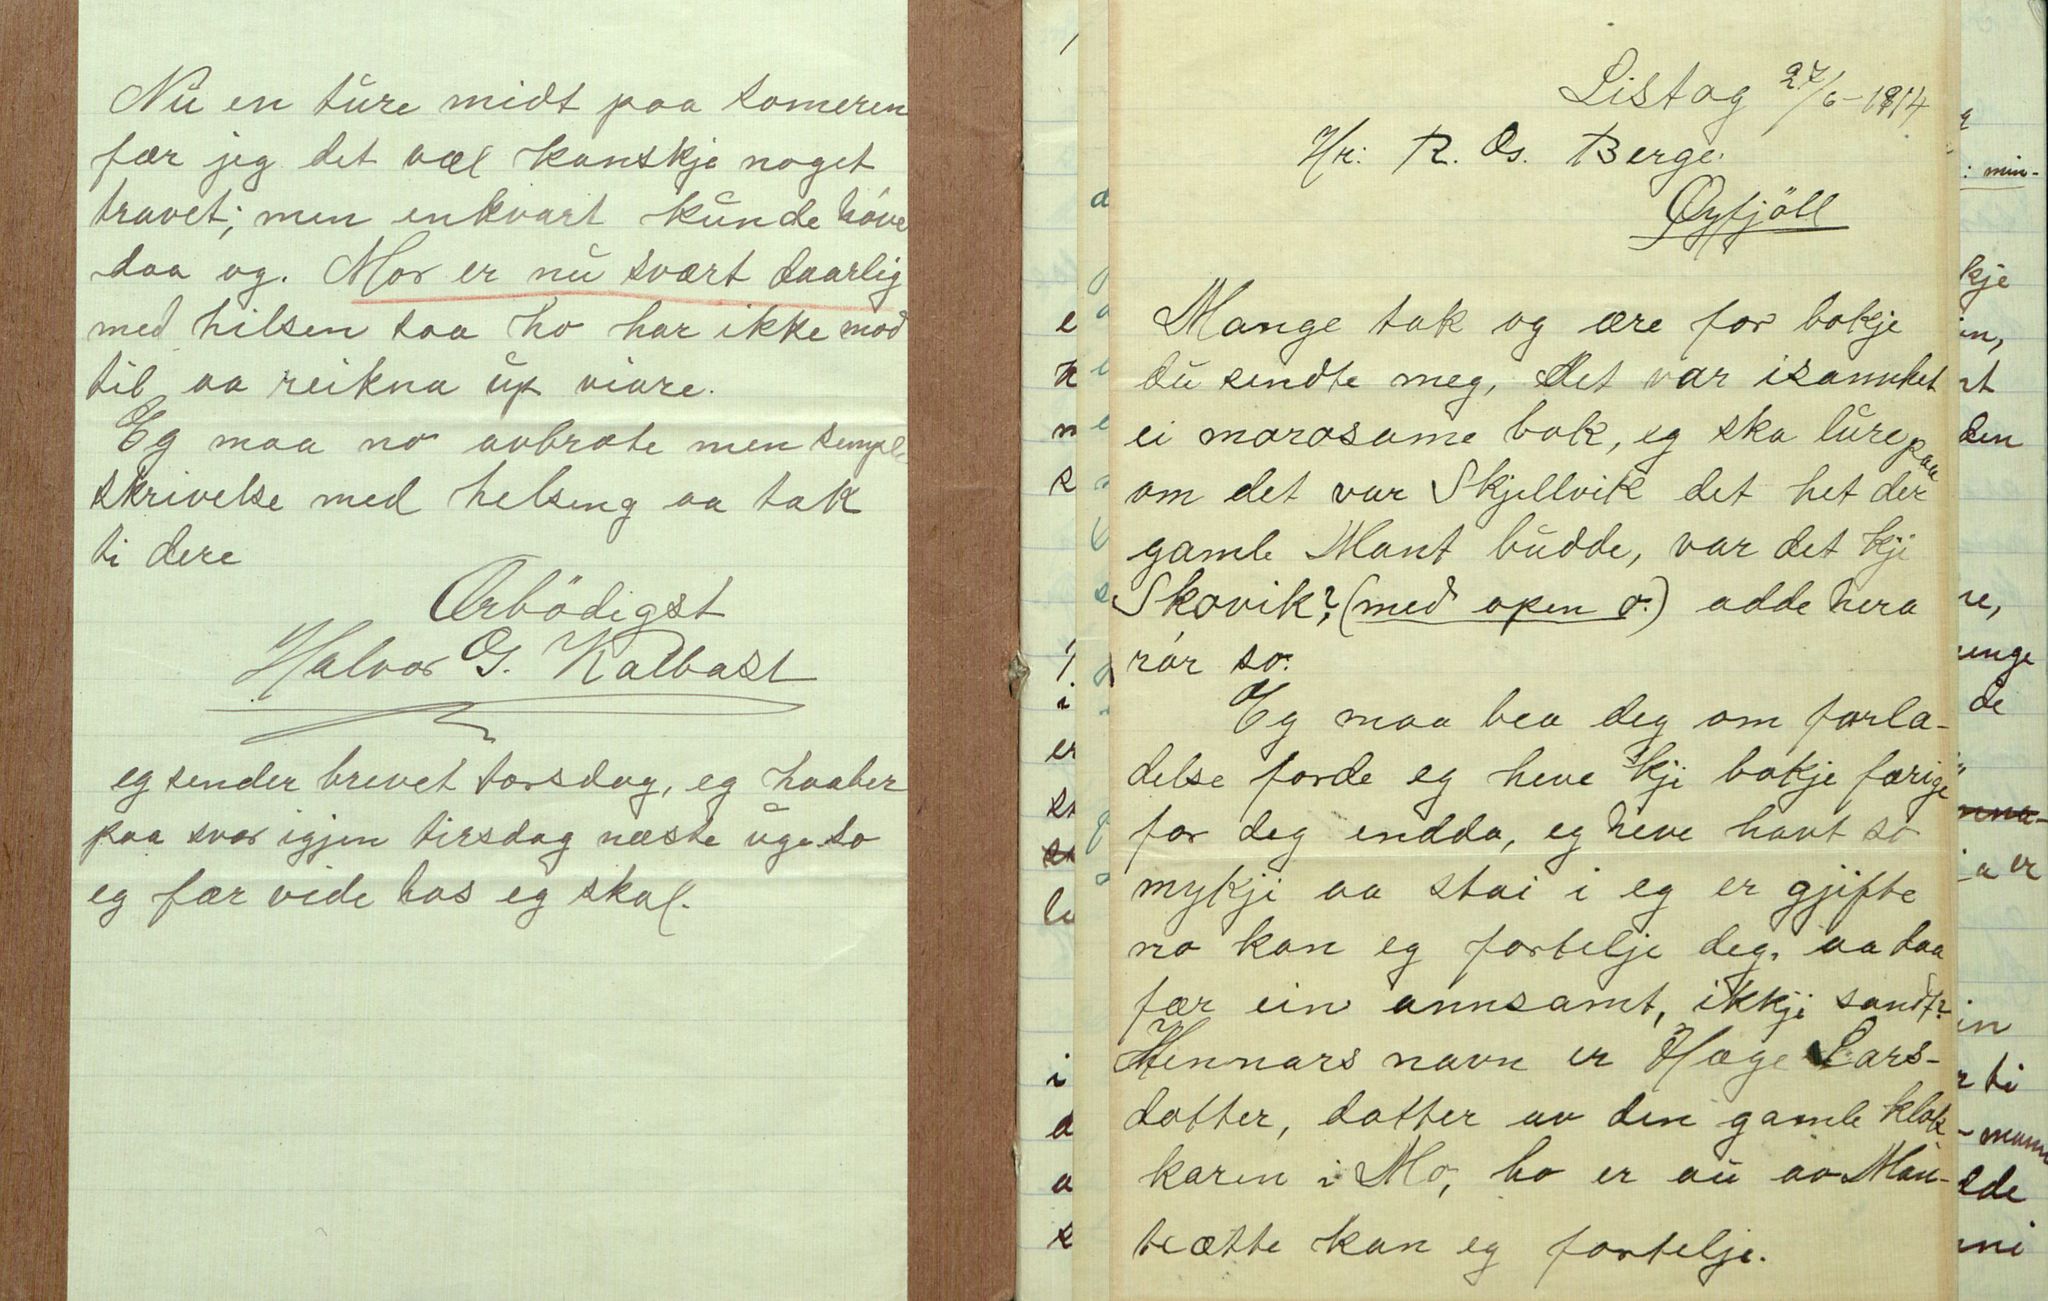 Nu en ture midt paa someren
fær jeg det væl kanskje noget
travet; men enkvart kunde höve
daa og. Mor er nu svært daarlig
med hilsen saa ho har ikke mod
til aa reikna up viare.
Eg maa no avbrote men simple
skrivelse med helseng aa tak
ti dere
Ærbödigst
Halvor G. Kalbast
eg sender brevet torsdag, eg haaber
paa svar igjen tirsdag næste uge so
eg fær vide hos eg skal.
Listog 27/6-1914
Hr: R. Os. Berge.
Øyfjöll
Mange tak og ære for bokje
du sendte meg, det var isannhet
ei morosame bok, eg ska lure paa
om det var Skjellvik det het der
gamle Mant budde, var det kji
Skovik? (med open o.) adde hera
rór so.
Eg maa bea deg om forla-
delse forde eg heve kji bokje færige
for deg endda, eg heve havt so
mykji aa stai i eg er gjifte
no kan eg fortelje deg, aa daa
fær ein annsamt, ikkji sandt?
Hennars navn er Hæge Lars-
dotter, dotter av den gamle klok
karen i Mo, ho er au av Man-
teætte kan eg fortelje.